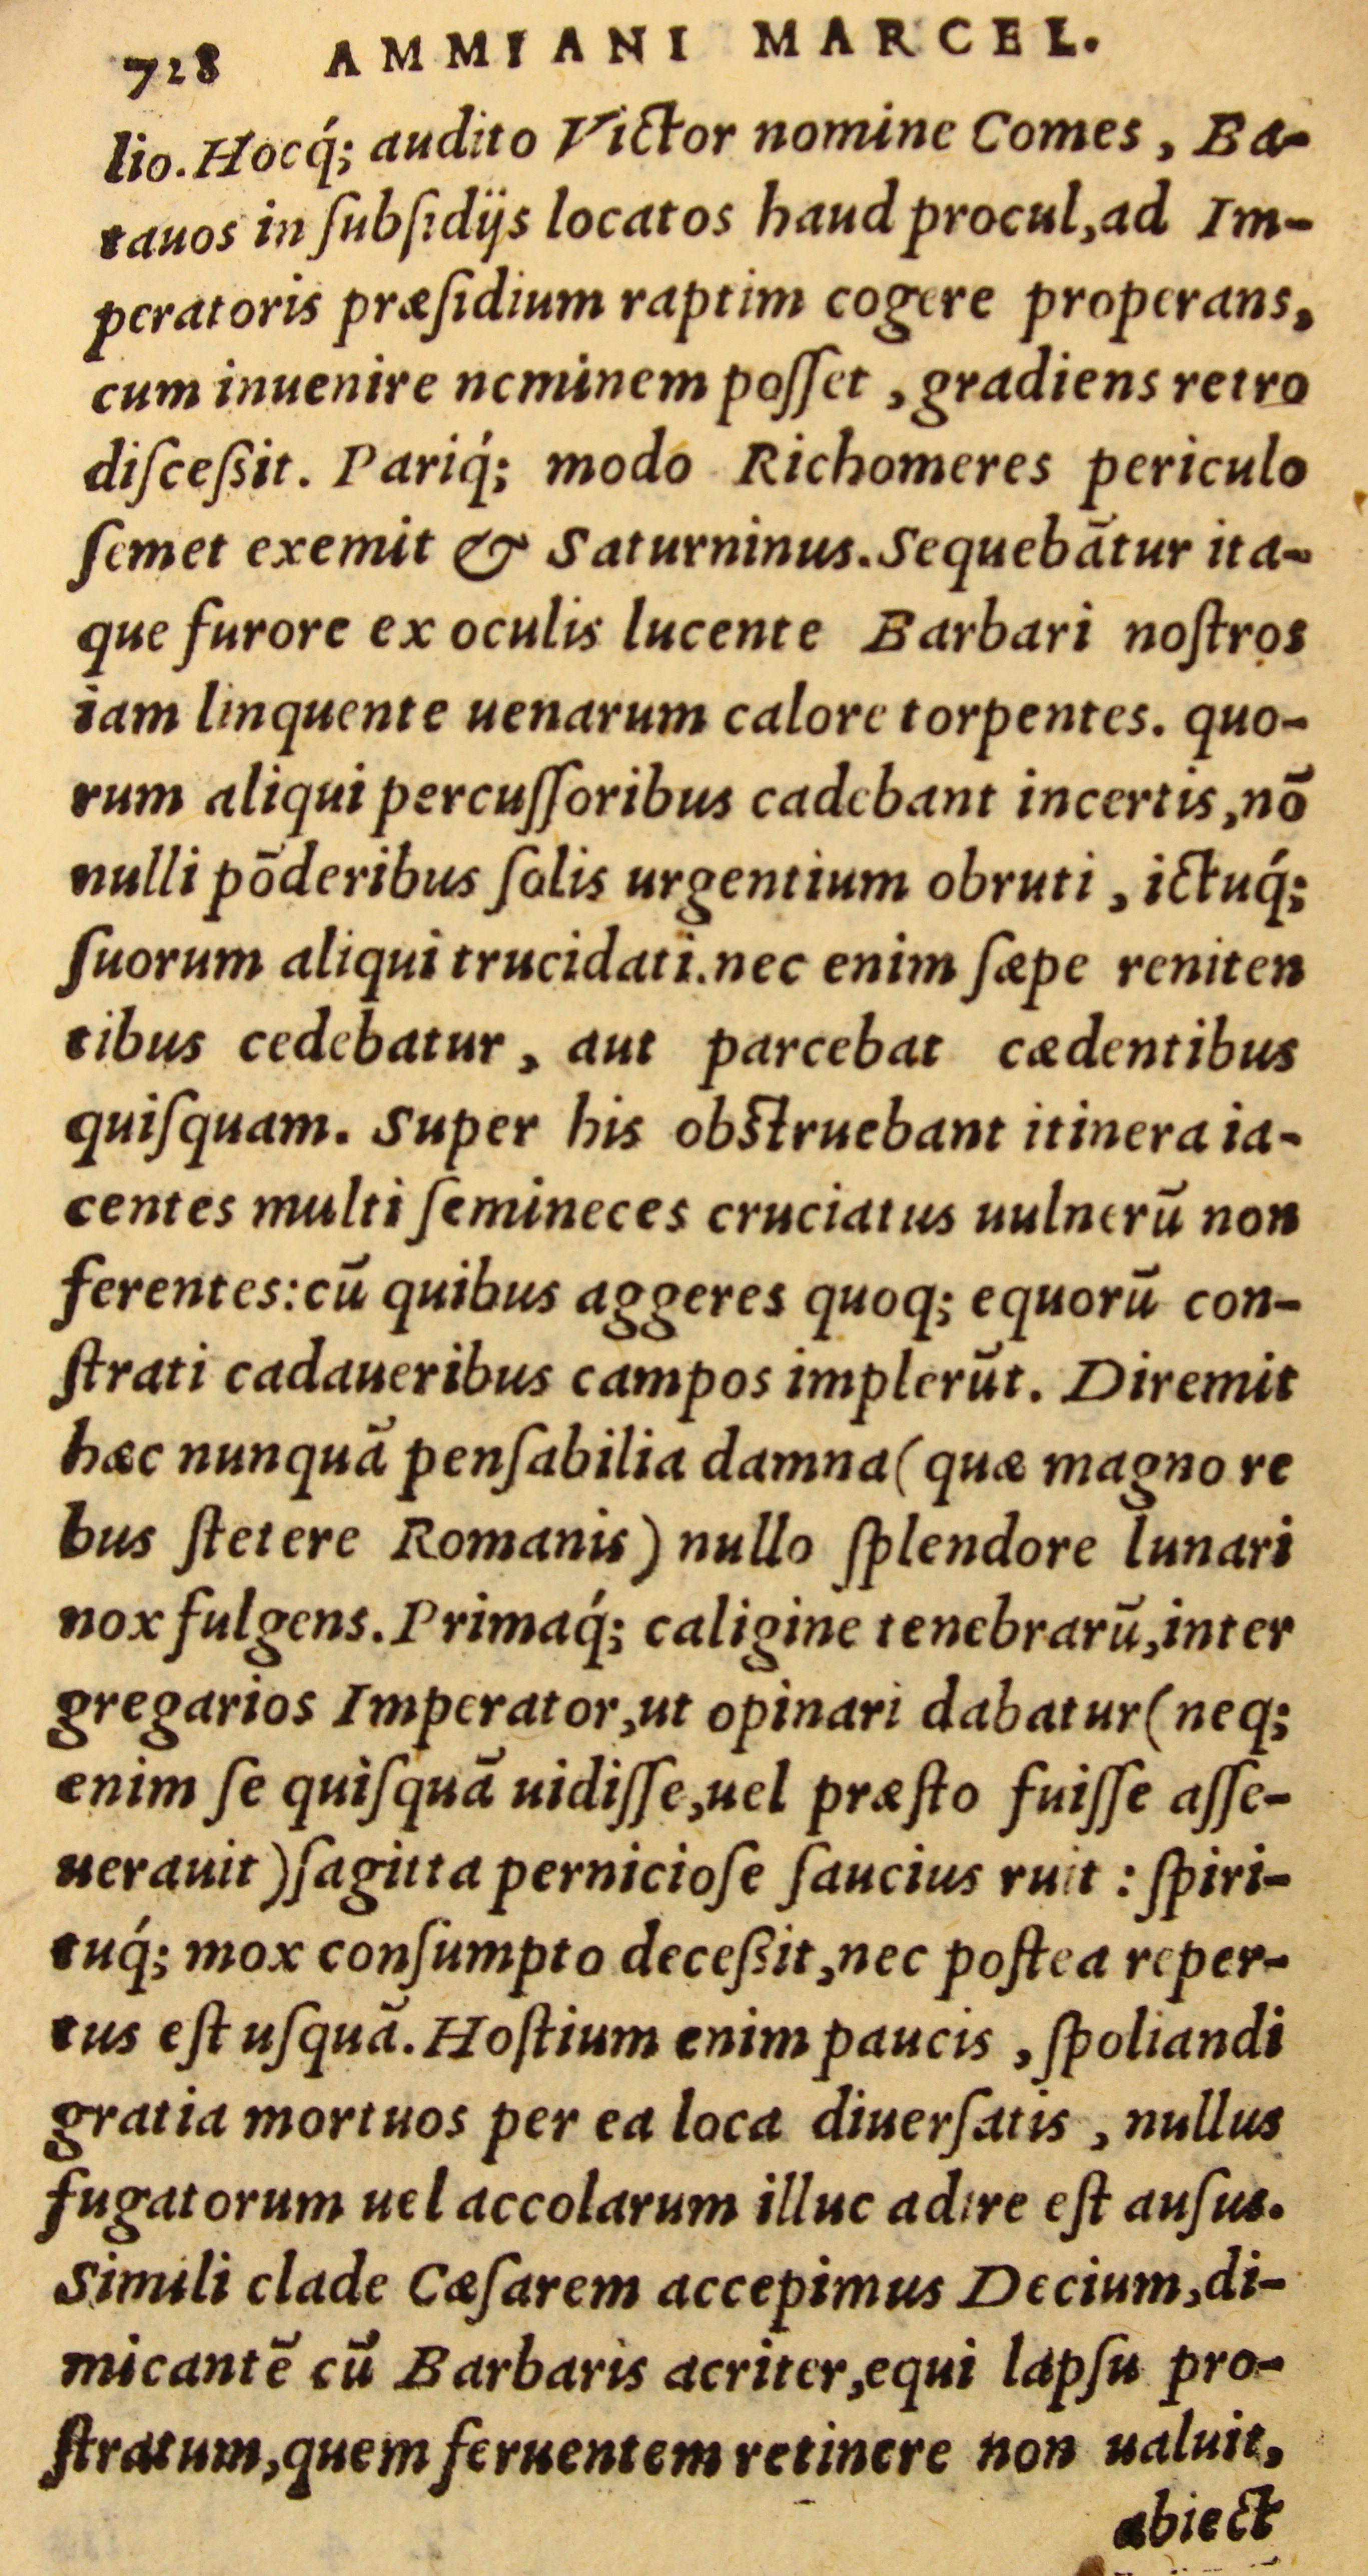 728 AMMIANI MARCEL.
lio. Hocq́; audito Victor nomine Comes, Ba-
tauos in ſubſidijs locatos haud procul, ad Im-
peratoris præſidium raptim cogere properans,
cum inuenire neminem poſſet, gradiens retro
diſceßit. Pariq́; modo Richomeres periculo
ſemet exemit & Saturninus. Sequebãtur ita-
que furore ex oculis lucente Barbari noſtros
iam linquente uenarum calore torpentes. quo-
rum aliqui percuſſoribus cadebant incertis, nõ
nulli põderibus ſolis urgentium obruti, ictuq́;
ſuorum aliqui trucidati. nec enim ſæpe reniten
tibus cedebatur, aut parcebat cædentibus
quiſquam. Super his obſtruebant itinera ia-
centes multi ſemineces cruciatus uulnerũ non
ferentes: cũ quibus aggeres quoq; equorũ con-
ſtrati cadaueribus campos implerũt. Diremit
hæc nunquã penſabilia damna (quæ magno re
bus ſtetere Romanis) nullo ſplendore lunari
nox fulgens. Primaq́; caligine tenebrarũ, inter
gregarios Imperator, ut opinari dabatur (neq;
enim ſe quiſquã uidiſſe, uel præſto fuiſſe aſſe-
uerauit) ſagitta pernicioſe ſaucius ruit: ſpiri-
tuq́; mox conſumpto deceßit, nec poſtea reper-
tus eſt uſquã. Hoſtium enim paucis, ſpoliandi
gratia mortuos per ea loca diuerſatis, nullus
fugatorum uel accolarum illuc adire eſt auſus.
Simili clade Cæſarem accepimus Decium, di-
micantẽ cũ Barbaris acriter, equi lapſu pro-
ſtratum, quem feruentem retinere non ualuit,
abiect